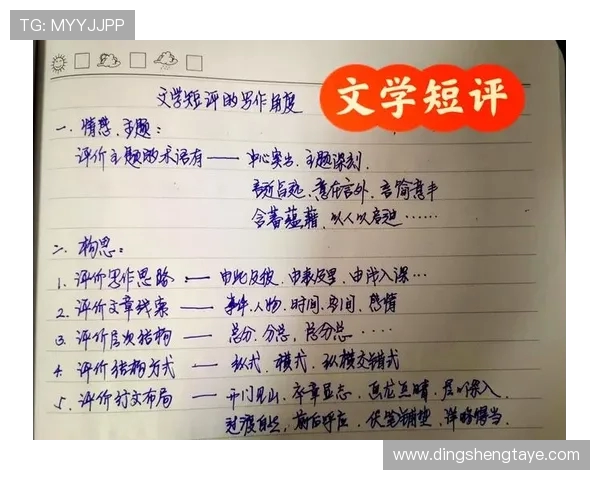 TG: MYYJJPP
文学短评
文学短评的写作角度
一、情感、主题：
评价主题的术语有——中心突出、主题深刻、
言近旨远、意在言外、言简意丰
含蓄蕴藉、以人以启迪……
二、构思：
1、评价写作思路——由此及彼、由表及里、由浅入深…
2、评价文章线索——事件、人物、时间、空间、感情
3、评价层次结构——总分、分总、总分总……
4、评价结构方式——纵式、横式、纵横交错式
5、评价行文布局——开门见山、卒章显志、画龙点睛、层层深入、
过渡自然、前后呼应、伏笔铺垫、详略得当、
www.dingshengtaye.com